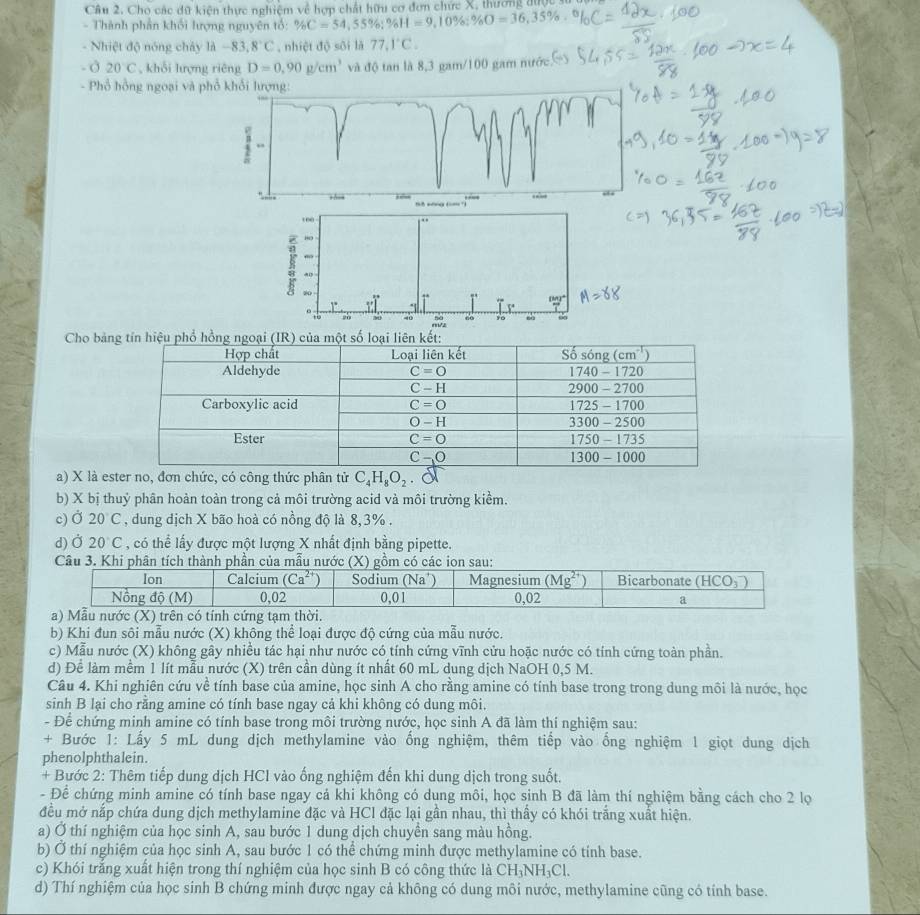 Câu 2. Cho các dữ kiện thực nghiệm về hợp chất hữu cơ đơn chức X, thường được
- Thành phần khối lượng nguyên tố: %C = 54,55%; %H = 9,10%; %O = 36,35% . %C = 12x/88 . 100
- Nhiệt độ nóng chảy là -83,8°C , nhiệt độ sôi là 77,1°C .
- Ở 20°C , khối lượng riêng D = 0,90 g/cm³ và độ tan là 8,3 gam/100 gam nước.
54,55 = 12x/88 . 100 → x = 4
- Phổ hồng ngoại và phổ khối lượng:
.100
9,10 = . 100 => y = 8
% O = 16z/88 . 100
<=> 36,35 = 16z/88 . 100 =>
Số sóng (cm⁻¹)
Cường độ tương đối (%)
100
80
60
40
20
0
10 20 30 40 50 60 70 80 90
[M]⁺
M = 88
m/z
Cho bảng tín hiệu phổ hồng ngoại (IR) của một số loại liên kết:
Hợp chất Loại liên kết Số sóng (cm⁻¹)
Aldehyde C = O 1740 – 1720
C – H 2900 – 2700
Carboxylic acid C = O 1725 – 1700
O – H 3300 – 2500
Ester C = O 1750 – 1735
C – O 1300 – 1000
a) X là ester no, đơn chức, có công thức phân tử C₄H₈O₂ .
b) X bị thuỷ phân hoàn toàn trong cả môi trường acid và môi trường kiềm.
c) Ở 20°C , dung dịch X bão hoà có nồng độ là 8,3% .
d) Ở 20°C , có thể lấy được một lượng X nhất định bằng pipette.
Câu 3. Khi phân tích thành phần của mẫu nước (X) gồm có các ion sau:
Ion Calcium (Ca²⁺) Sodium (Na⁺) Magnesium (Mg²⁺) Bicarbonate (HCO₃⁻)
Nồng độ (M) 0,02 0,01 0,02 a
a) Mẫu nước (X) trên có tính cứng tạm thời.
b) Khi đun sôi mẫu nước (X) không thể loại được độ cứng của mẫu nước.
c) Mẫu nước (X) không gây nhiều tác hại như nước có tính cứng vĩnh cửu hoặc nước có tính cứng toàn phần.
d) Để làm mềm 1 lít mẫu nước (X) trên cần dùng ít nhất 60 mL dung dịch NaOH 0,5 M.
Câu 4. Khi nghiên cứu về tính base của amine, học sinh A cho rằng amine có tính base trong trong dung môi là nước, học
sinh B lại cho rằng amine có tính base ngay cả khi không có dung môi.
- Để chứng minh amine có tính base trong môi trường nước, học sinh A đã làm thí nghiệm sau:
+ Bước 1: Lấy 5 mL dung dịch methylamine vào ống nghiệm, thêm tiếp vào ống nghiệm 1 giọt dung dịch
phenolphthalein.
+ Bước 2: Thêm tiếp dung dịch HCl vào ống nghiệm đến khi dung dịch trong suốt.
- Để chứng minh amine có tính base ngay cả khi không có dung môi, học sinh B đã làm thí nghiệm bằng cách cho 2 lọ
đều mở nắp chứa dung dịch methylamine đặc và HCl đặc lại gần nhau, thì thấy có khói trắng xuất hiện.
a) Ở thí nghiệm của học sinh A, sau bước 1 dung dịch chuyển sang màu hồng.
b) Ở thí nghiệm của học sinh A, sau bước 1 có thể chứng minh được methylamine có tính base.
c) Khói trắng xuất hiện trong thí nghiệm của học sinh B có công thức là CH₃NH₃Cl.
d) Thí nghiệm của học sinh B chứng minh được ngay cả không có dung môi nước, methylamine cũng có tính base.